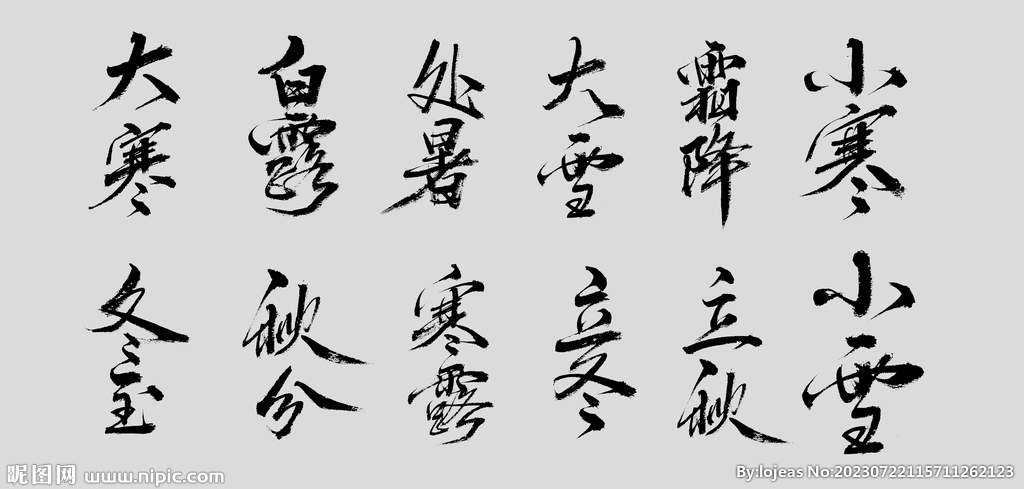 大寒
白露
处暑
大雪
霜降
小寒
冬至
秋分
寒露
立冬
立秋
小雪
昵图网 www.nipic.com
By:lojeas No:20230722115711262123